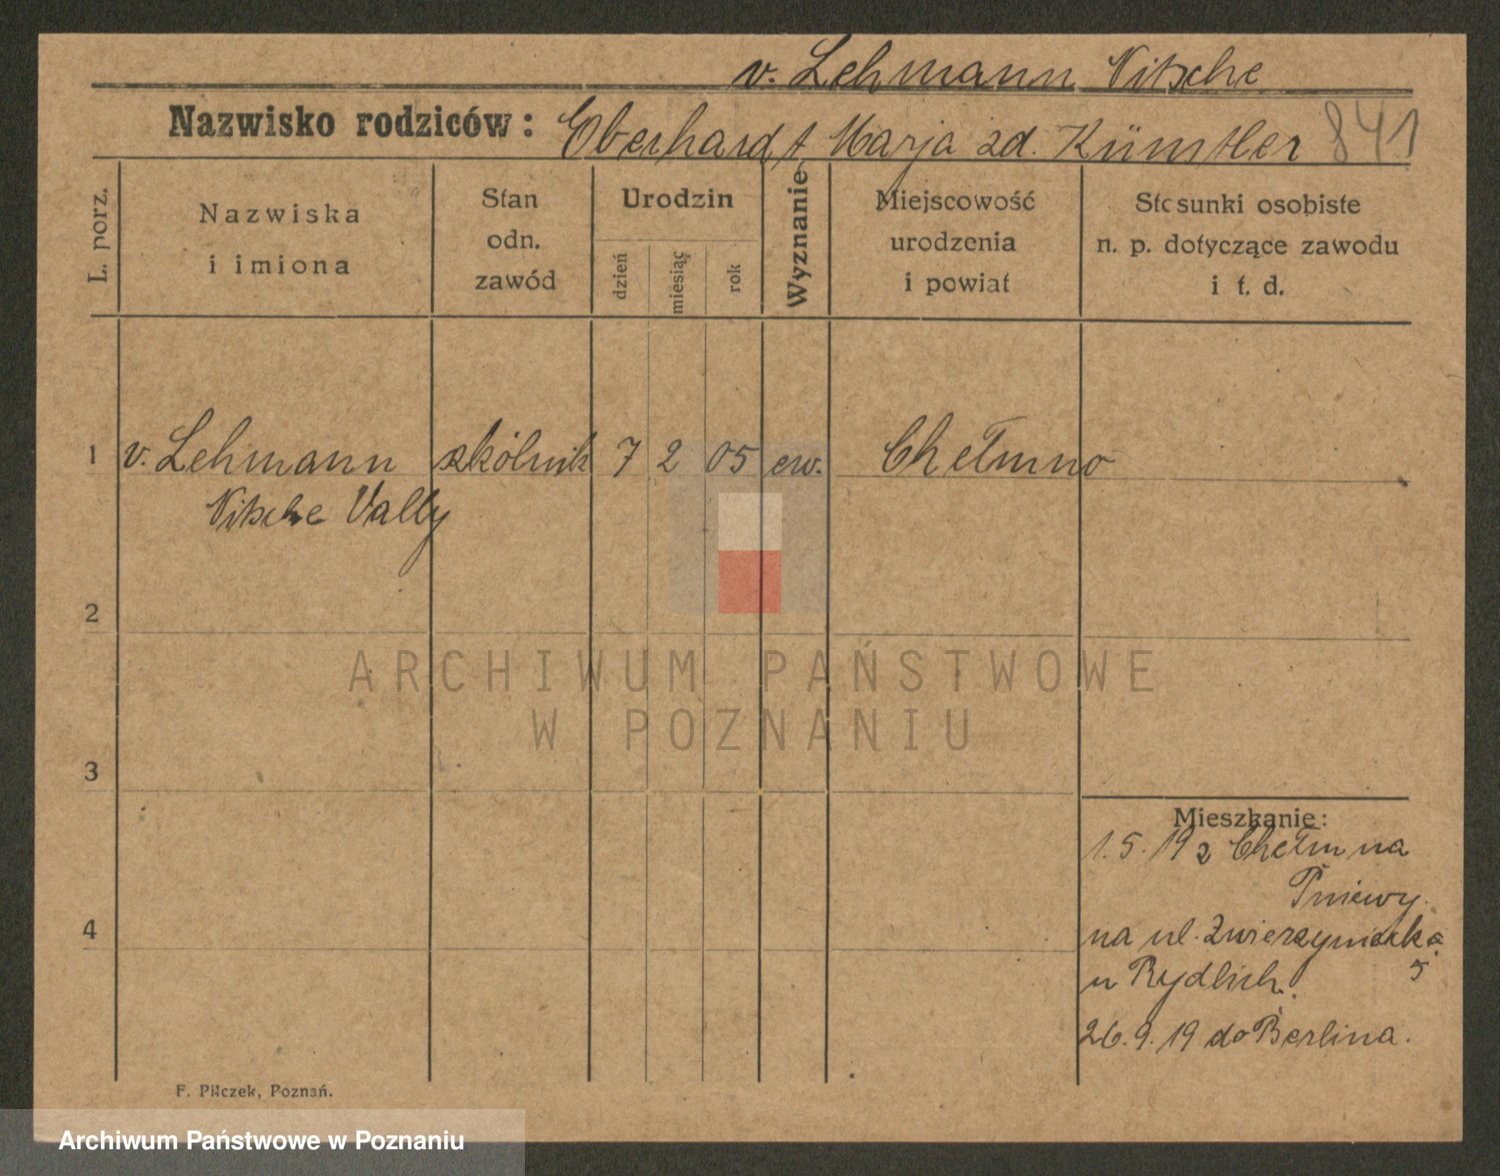 v. Lehmann Nitsche
Nazwisko rodziców: Eberhardt, Marja zd. Künstler 841
L. porz.
Nazwiska
i imiona
Stan
odn.
zawód
Urodzin
dzień
miesiąc
rok
Wyznanie
Miejscowość
urodzenia
i powiat
Stosunki osobiste
n. p. dotyczące zawodu
i t. d.
1 v. Lehmann skólnik 7 2 05 ew. Chełmno
Nitsche Vally
2
ARCHIWUM PAŃSTWOWE
W POZNANIU
3
Mieszkanie:
1.5.19 z Chełmna
Pniewy
4
na ul. Zwierzyniecką
5
u Rydlich.
26.9.19 do Berlina.
F. Pilczek, Poznań.
Archiwum Państwowe w Poznaniu